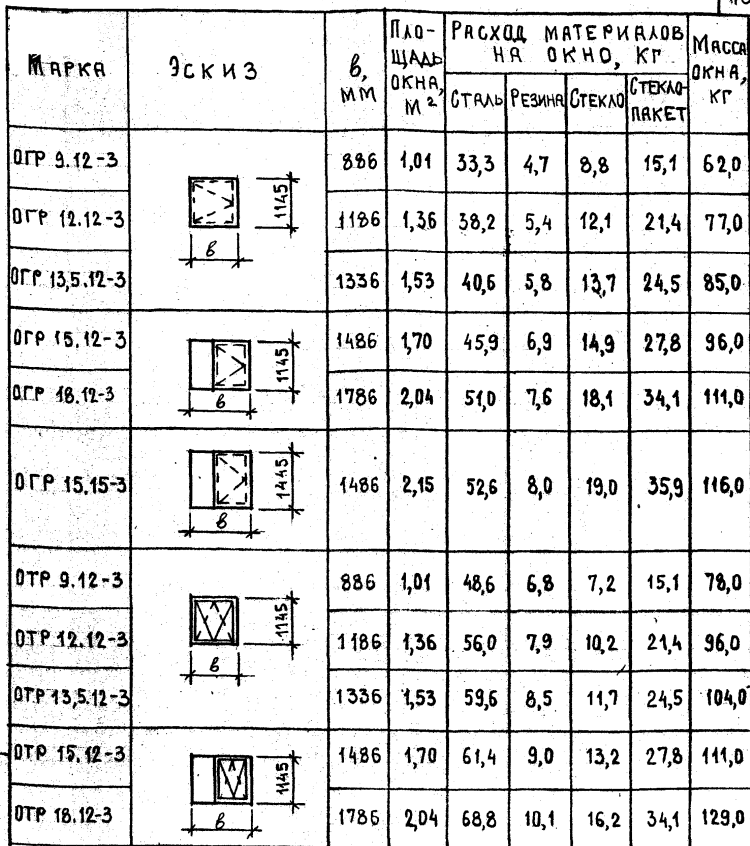 МАРКА ЭСКИЗ в, ММ ПЛО-ЩАДЬ ОКНА, М² РАСХОД МАТЕРИАЛОВ НА ОКНО, КГ МАССА ОКНА, КГ
СТАЛЬ РЕЗИНА СТЕКЛО СТЕКЛО-ПАКЕТ
ОГР 9.12-3 886 1,01 33,3 4,7 8,8 15,1 62,0
1145 в
ОГР 12.12-3 1186 1,36 38,2 5,4 12,1 21,4 77,0
ОГР 13,5.12-3 1336 1,53 40,6 5,8 13,7 24,5 85,0
ОГР 15.12-3 1486 1,70 45,9 6,9 14,9 27,8 96,0
1145 в
ОГР 18.12-3 1786 2,04 51,0 7,6 18,1 34,1 111,0
ОГР 15.15-3 1486 2,15 52,6 8,0 19,0 35,9 116,0
1445 в
ОТР 9.12-3 886 1,01 48,6 6,8 7,2 15,1 78,0
1145 в
ОТР 12.12-3 1186 1,36 56,0 7,9 10,2 21,4 96,0
ОТР 13,5.12-3 1336 1,53 59,6 8,5 11,7 24,5 104,0
ОТР 15.12-3 1486 1,70 61,4 9,0 13,2 27,8 111,0
1145 в
ОТР 18.12-3 1786 2,04 68,8 10,1 16,2 34,1 129,0